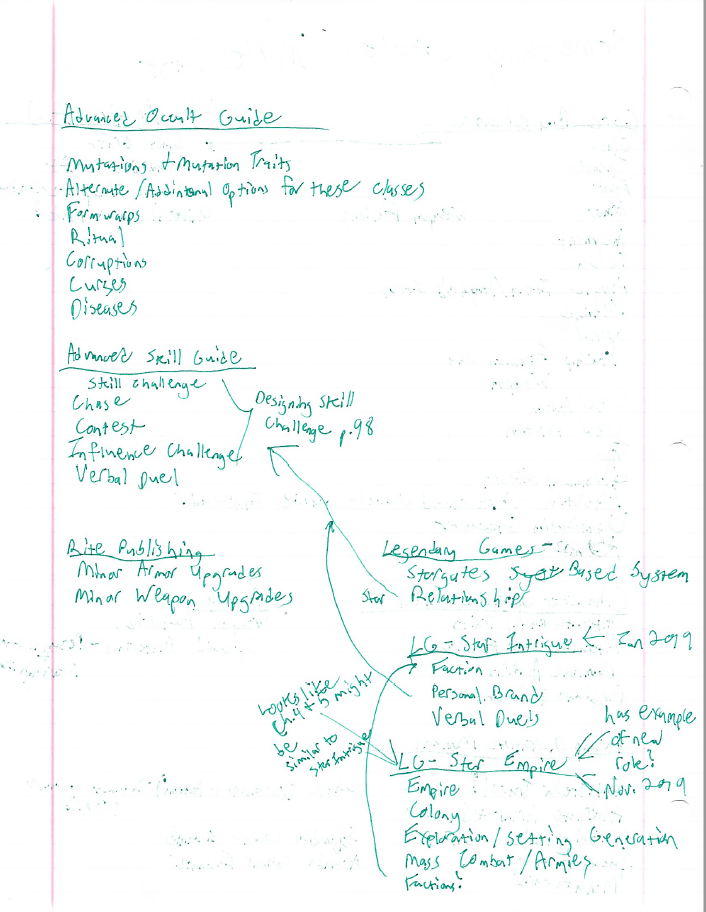 Advanced Occult Guide
Mutations + Mutation Traits
Alternate / Addintonal Options for these classes
Formwarps
Ritual
Corruptions
Curses
Diseases
Advanced Skill Guide
Skill Challenge
Chase
Contest
Influence Challenge
Verbal Duel
Designing Skill
Challenge p.98
Rite Publishing
Minor Armor Upgrades
Minor Weapon Upgrades
Legendary Games -
Stargates Based System
Star Relationship
LG - Star Intrigue ← Jan 2019
Faction
Personal Brand
Verbal Duels
Looks like
Ch. 4 + 5 might
be
similar to
Star Intrigue
LG - Star Empire
has example
of new
role?
Nov. 2019
Empire
Colony
Exploration / Setting Generation
Mass Combat / Armies
Factions?